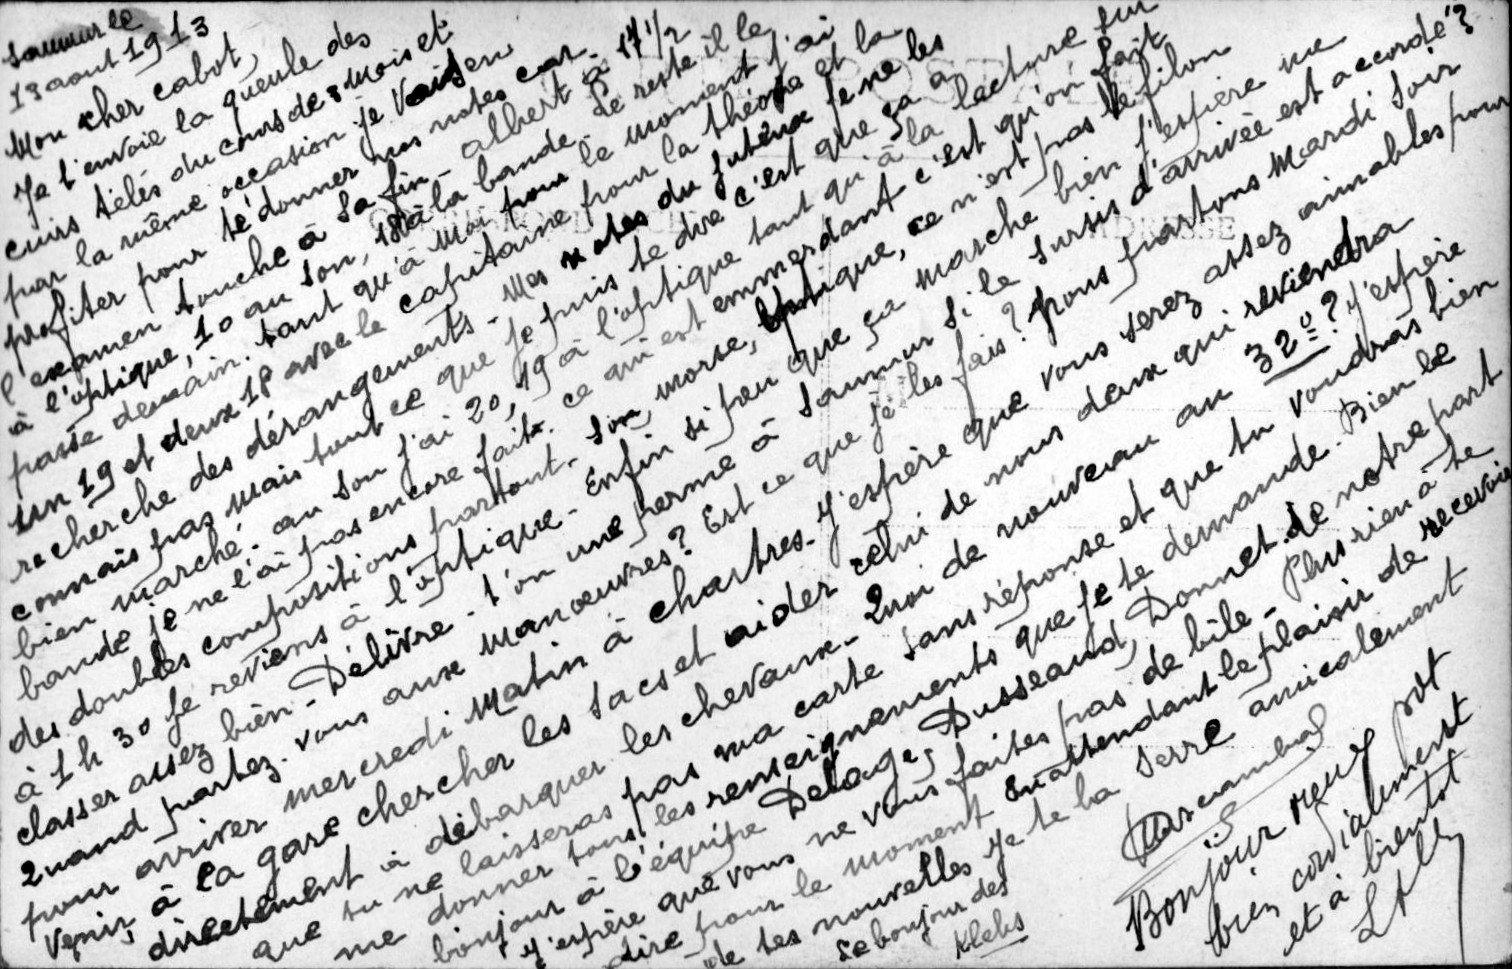 Saumur le
13 aout 1913
Mon cher cabot,
Je t'envoie la gueule des
cuirs télés du cours de 3 mois et
par la même occasion je vais en
profiter pour te donner mes notes car
l'examen touche à sa fin - albert a 17 1/2
à l'optique, 10 au son, à la bande. Le reste il le
passe demain. tant qu'à moi pour le moment j'ai
un 19 et deux 18 avec le capitaine pour la théorie et la
recherche des dérangements. Mes notes du je ne les
connais pas mais tout ce que je puis te dire c'est que ça a
bien marché. au son j'ai 20, 19 à l'optique tant qu'à la lecture sur
bande je ne l'ai pas encore faite. ce qui est emmerdant c'est qu'on fait
des doubles compositions partout. Son, morse, optique, ce n'est pas le filon
à 1h 30 je reviens à l'optique. Enfin si peu que ça marche bien j'espère me
classer assez bien. Délivre t'on une perme à Saumur si le sursis d'arrivée est accordé ?
Quand partez vous aux manœuvres ? Est ce que je les fais ? Nous partons Mardi soir
pour arriver mercredi Matin à Chartres. J'espère que vous serez assez aimables pour
venir à la gare chercher les sacs et aider celui de nous deux qui reviendra
directement à débarquer les chevaux. Quoi de nouveau au 32º ? J'espère
que tu ne laisseras pas ma carte sans réponse et que tu voudras bien
me donner tous les renseignements que je te demande. Bien le
bonjour à l'équipe Delage, Dusseaud, Donnet de notre part
J'espère que vous ne vous faites pas de bile. Plus rien à te
dire pour le moment En attendant le plaisir de recevoir
de tes nouvelles je te la serre amicalement
Le bonjour des
Klebs
Bonjour vieux pot
bien cordialement
et à bientot